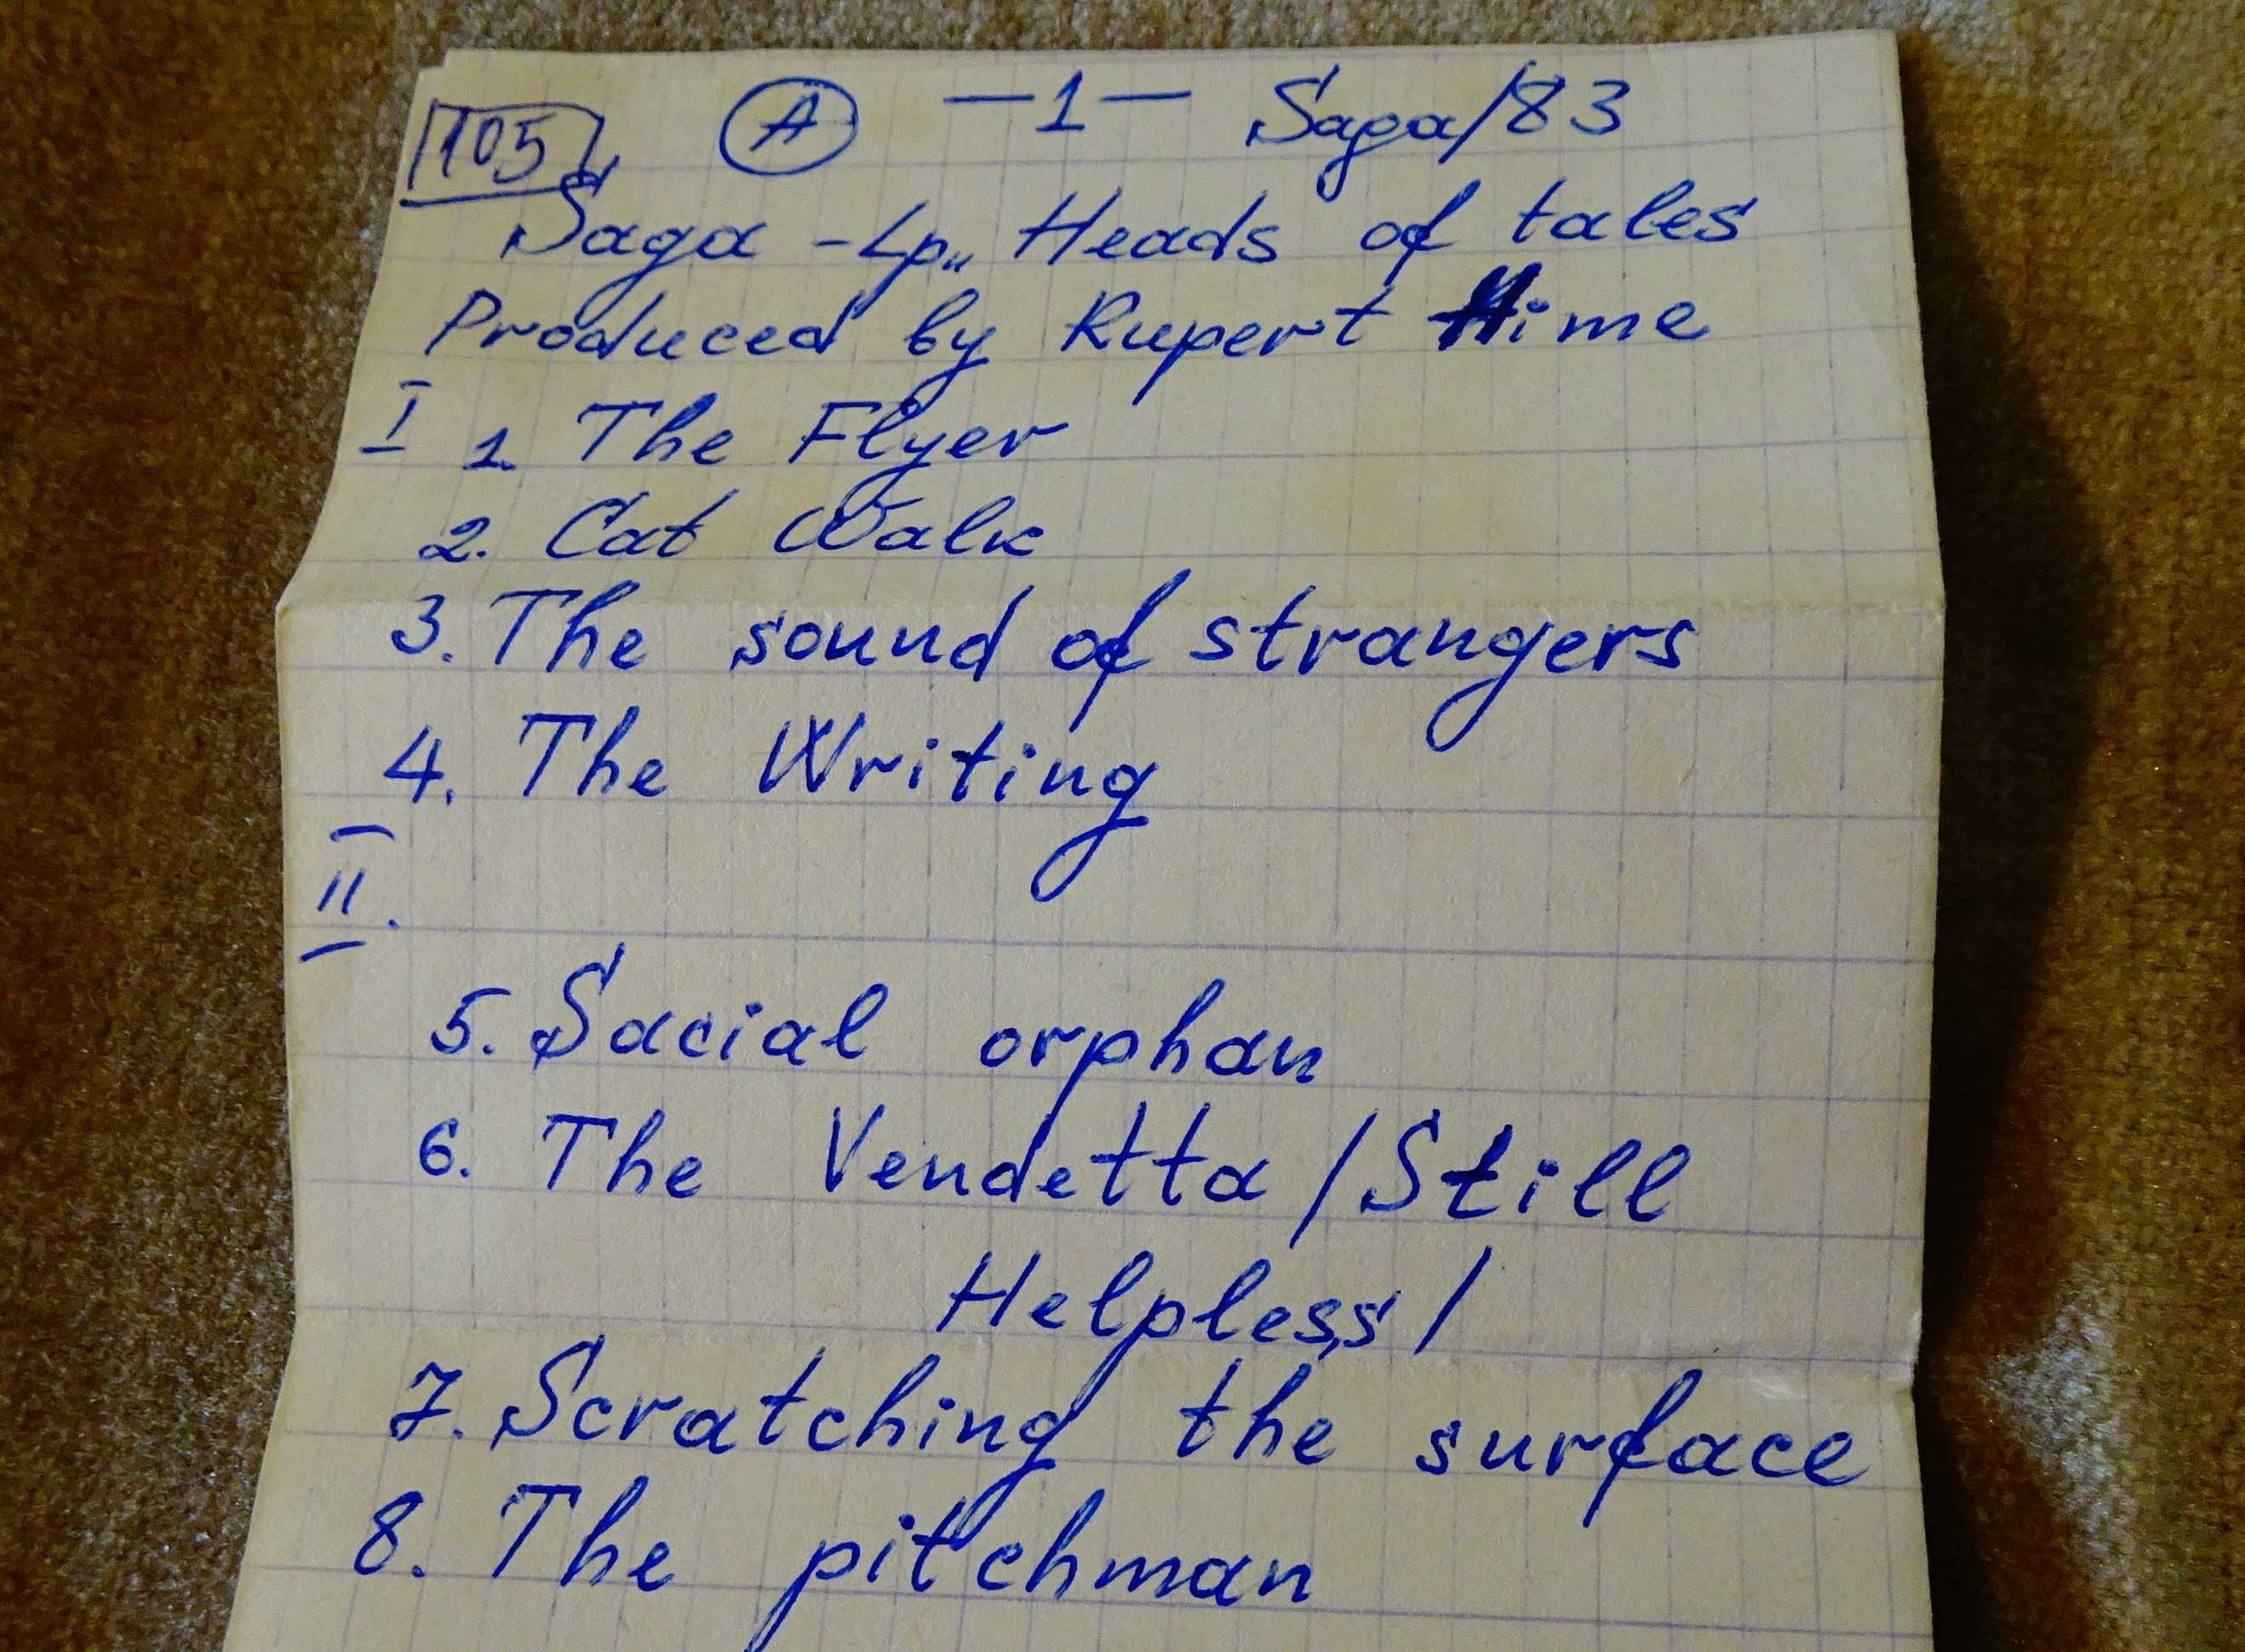 105 A —1— Saga/83
Saga - Lp „ Heads of tales
Produced by Rupert Hime
I 1. The Flyer
2. Cat Walk
3. The sound of strangers
4. The Writing
II.
5. Sacial orphan
6. The Vendetta /Still
Helpless/
7. Scratching the surface
8. The pitchman